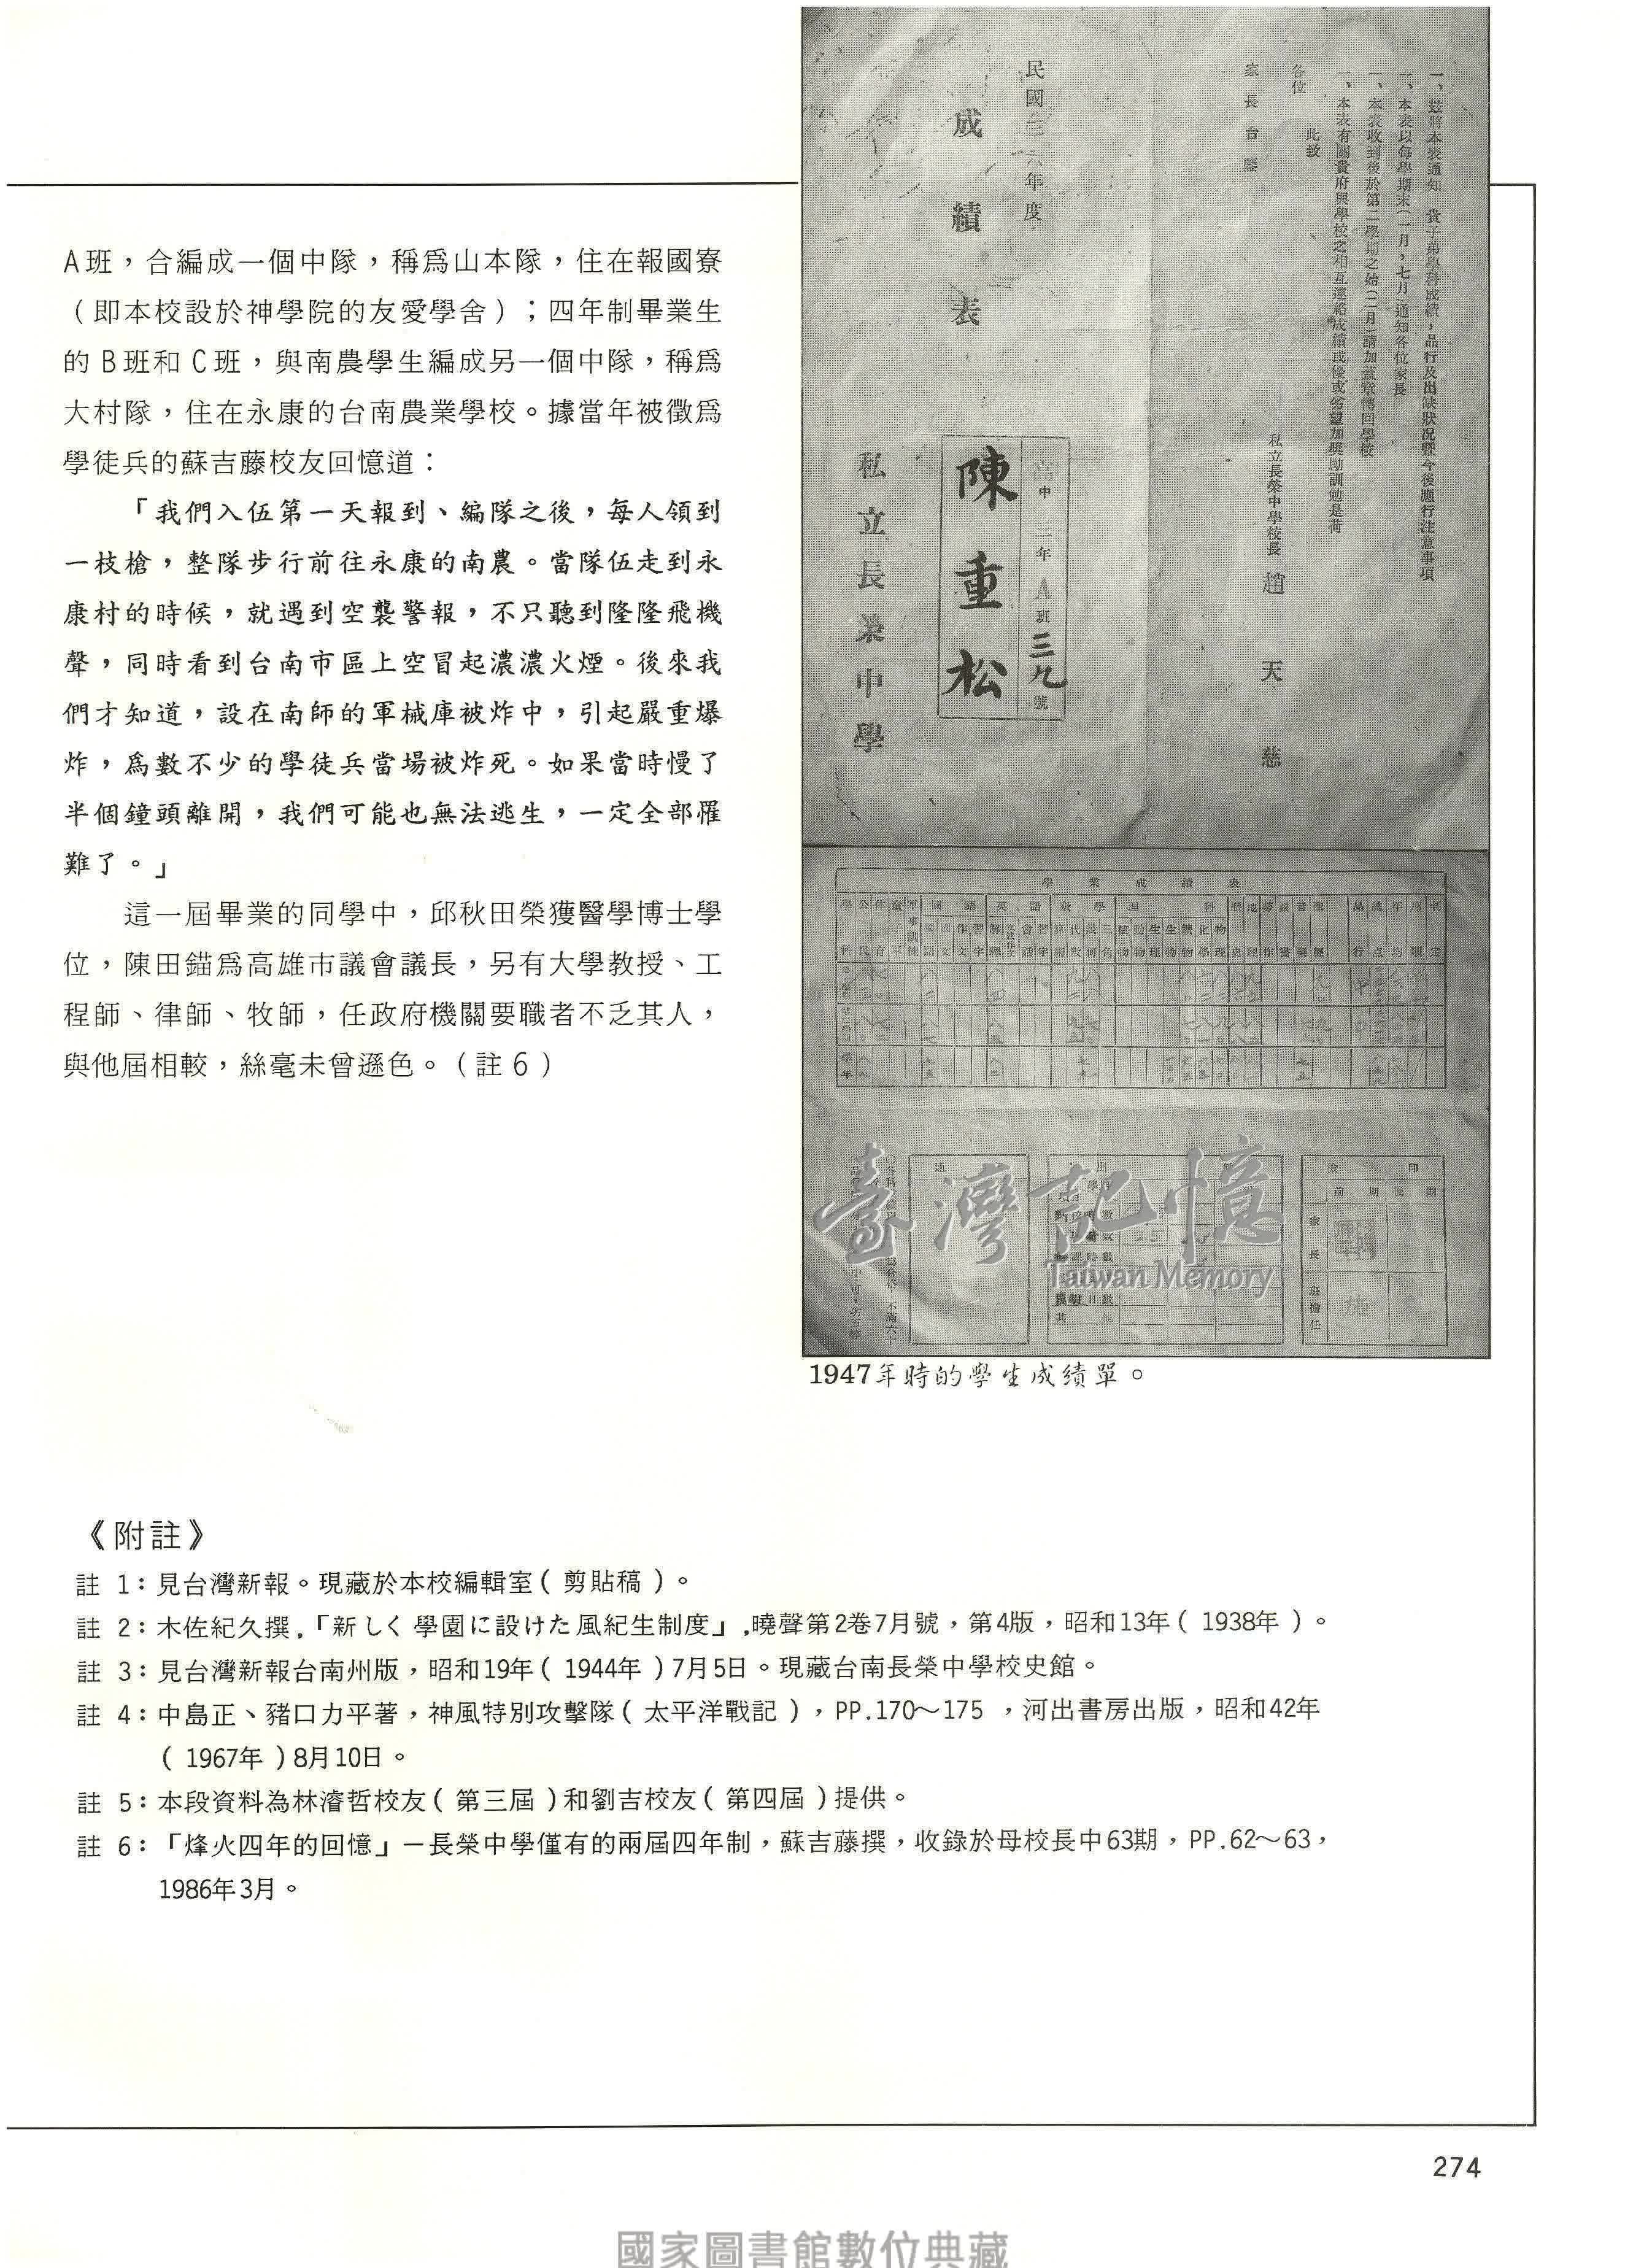 A班，合編成一個中隊，稱爲山本隊，住在報國寮
（即本校設於神學院的友愛學舍）；四年制畢業生
的B班和C班，與南農學生編成另一個中隊，稱爲
大村隊，住在永康的台南農業學校。據當年被徵爲
學徒兵的蘇吉藤校友回憶道：
「我們入伍第一天報到、編隊之後，每人領到
一枝槍，整隊步行前往永康的南農。當隊伍走到永
康村的時候，就遇到空襲警報，不只聽到隆隆飛機
聲，同時看到台南市區上空冒起濃濃火煙。後來我
們才知道，設在南師的軍械庫被炸中，引起嚴重爆
炸，爲數不少的學徒兵當場被炸死。如果當時慢了
半個鐘頭離開，我們可能也無法逃生，一定全部罹
難了。」
這一屆畢業的同學中，邱秋田榮獲醫學博士學
位，陳田錨爲高雄市議會議長，另有大學教授、工
程師、律師、牧師，任政府機關要職者不乏其人，
與他屆相較，絲毫未曾遜色。（註6）
一、玆將本表通知 貴子弟學科成績，品行及出缺狀況暨今後應行注意事項
一、本表以每學期末（一月，七月）通知各位家長
一、本表收到後於第二學期之始（二月）請加蓋章轉回學校
一、本表有關貴府與學校之相互連絡成績或優或劣望加獎勵訓勉是荷
此致
各位
家長台鑒
私立長榮中學校長 趙天慈
民國三六年度
成績表
高中二年A班三九號
陳重松
私立長榮中學
學業成績表
臺灣記憶
Taiwan Memory
1947年時的學生成績單。
《附註》
註 1：見台灣新報。現藏於本校編輯室（剪貼稿）。
註 2：木佐紀久撰，「新しく學園に設けた風紀生制度」，曉聲第2卷7月號，第4版，昭和13年（1938年）。
註 3：見台灣新報台南州版，昭和19年（1944年）7月5日。現藏台南長榮中學校史館。
註 4：中島正、豬口力平著，神風特別攻擊隊（太平洋戰記），PP.170～175，河出書房出版，昭和42年
（1967年）8月10日。
註 5：本段資料為林濬哲校友（第三屆）和劉吉校友（第四屆）提供。
註 6：「烽火四年的回憶」－長榮中學僅有的兩屆四年制，蘇吉藤撰，收錄於母校長中63期，PP.62～63，
1986年3月。
274
國家圖書館數位典藏